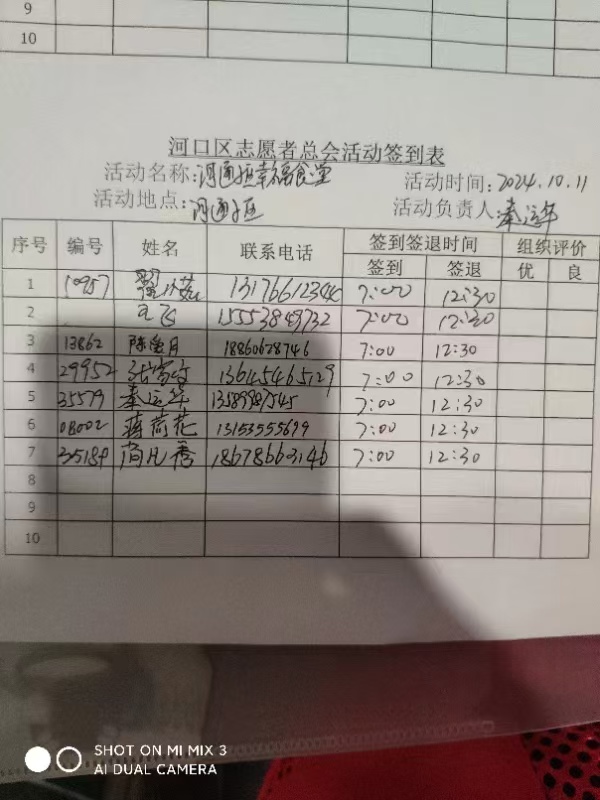 9
10
河口区志愿者总会活动签到表
活动名称: 河通社区幸福食堂 活动时间: 2024.10.11
活动地点: 河通社区 活动负责人: 秦运华
序号 编号 姓名 联系电话 签到签退时间 组织评价
签到 签退 优 良
1 10957 7:00 12:30
2 飞 15553849732 7:00 12:30
3 13862 陈爱月 18860628746 7:00 12:30
4 29952 13645465129 7:00 12:30
5 35579 秦运华 13589987545 7:00 12:30
6 08002 蒋荷花 13153555699 7:00 12:30
7 35184 18678663146 7:00 12:30
8
9
10
SHOT ON MI MIX 3
AI DUAL CAMERA